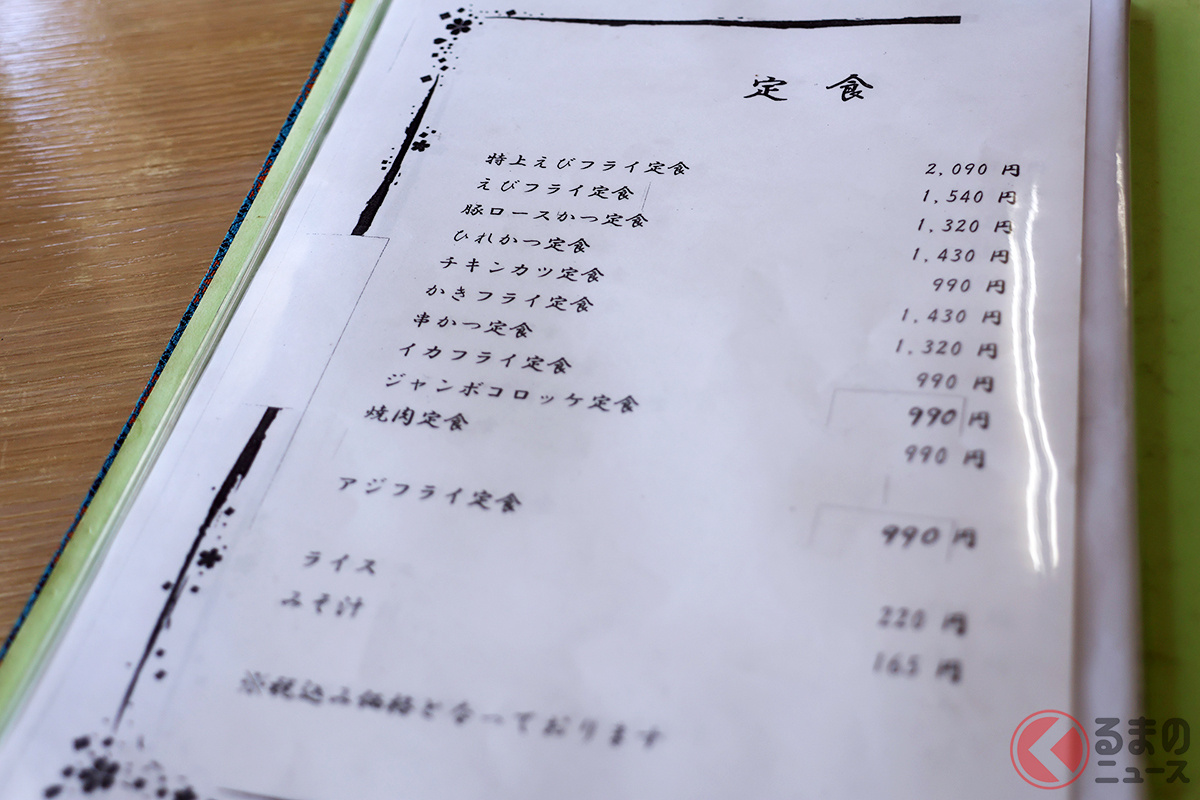 定食
特上えびフライ定食 2,090 円
えびフライ定食 1,540 円
豚ロースかつ定食 1,320 円
ひれかつ定食 1,430 円
チキンカツ定食 990 円
かきフライ定食 1,430 円
串かつ定食 1,320 円
イカフライ定食 990 円
ジャンボコロッケ定食 990 円
焼肉定食 990 円
アジフライ定食 990 円
ライス 220 円
みそ汁 165 円
※税込み価格となっております
くるまのニュース